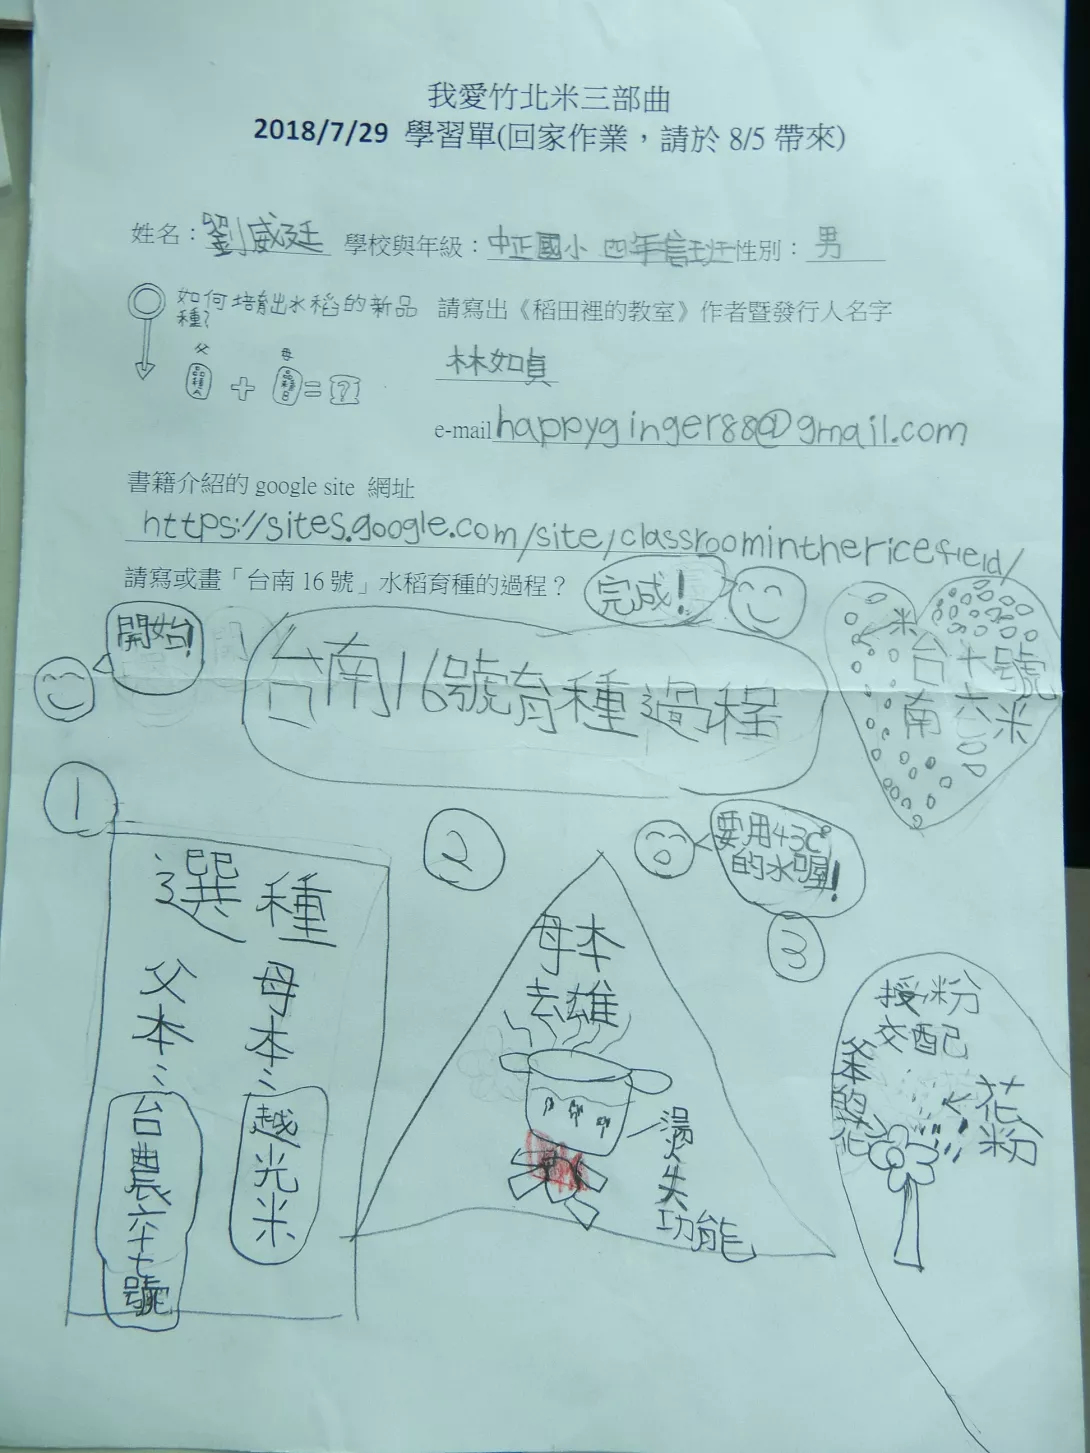 我愛竹北米三部曲
2018/7/29 學習單(回家作業，請於 8/5 帶來)
姓名：劉威廷 學校與年級：中正國小 四年信班 性別：男
如何培育出水稻的新品種?
父 母
品種A + 品種B = ?
請寫出《稻田裡的教室》作者暨發行人名字
林如貞
e-mail happyginger88@gmail.com
書籍介紹的 google site 網址
https://sites.google.com/site/classroominthericefield/
請寫或畫「台南 16 號」水稻育種的過程？
完成!
開始!
台南16號育種過程
米
台南十六號米
1
選種
父本：台農六十七號
母本：越光米
2
要用43C°的水喔!
母本去雄
燙失功能
3
授粉交配
花粉